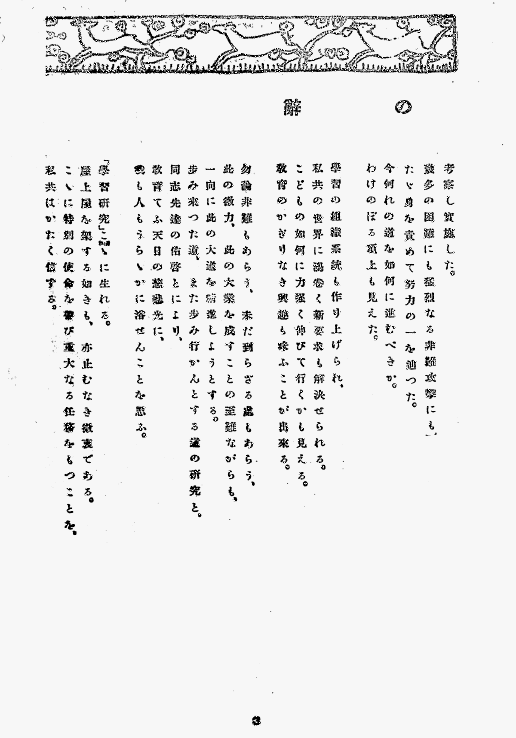 の辭
考察し實施した。
幾多の困難にも猛烈なる非難攻撃にも、
たゞ身を責めて努力の一を辿つた。
今何れの道を如何に進むべきか。
わけのぼる嶺上も見えた。
學習の組織系統も作り上げられ、
私共の世界に渦卷く新要求も解決せられる。
こどもの如何に力强く伸びて行くかも見える。
敎育のかぎりなき興趣も味ふことが出來る。
勿論非難もあらう、未だ到らざる處もあらう、
此の微力、此の大業を成すことの至難ながらも、
一向に此の大道を精進しようとする。
步み來つた道、また步み行かんとする道の硏究と、
同志先達の佑啓とにより、
敎育てふ天日の慈光に、
我も人もうらゝかに浴せんことを思ふ。
「學習硏究」こゝに生れる。
屋上屋を架する如きも、亦止むなき微衷である。
こゝに特別の使命を帶び重大なる任務をもつことを、
私共はかたく信ずる。
3